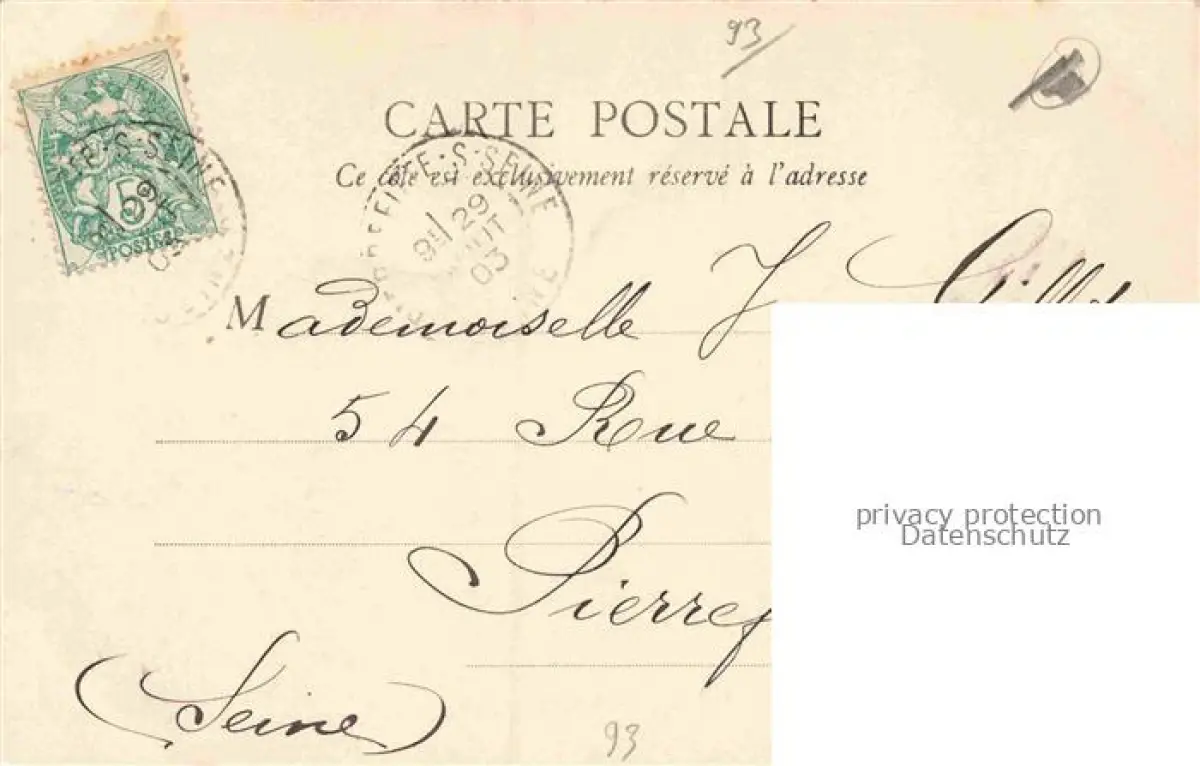 93
CARTE POSTALE
Ce côté est exclusivement réservé à l'adresse
POSTES
5
S-SEINE
29
AOUT
03
Mademoiselle J.
54 Rue
Pierref
(Seine)
93
privacy protection
Datenschutz